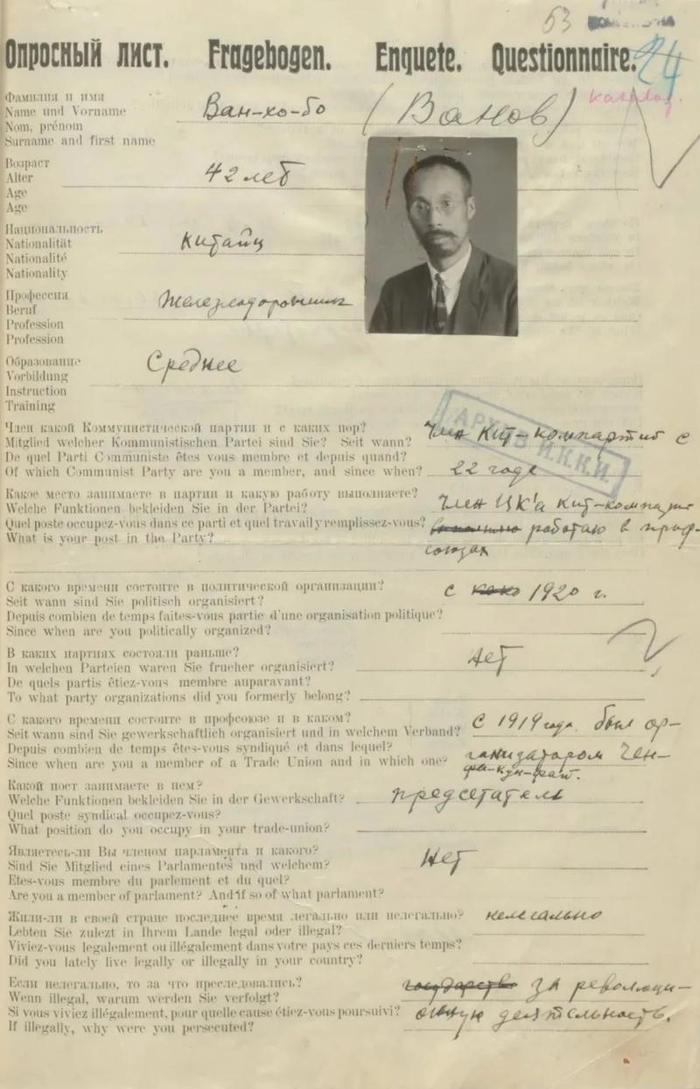 63
24
Опросный лист. Fragebogen. Enquete. Questionnaire.
Фамилия и имя
Name und Vorname
Nom, prénom
Surname and first name
Ван-хо-бо (Ванов)
Возраст
Alter
Age
Age
42 лет
Национальность
Nationalität
Nationalité
Nationality
Китайц
Профессия
Beruf
Profession
Profession
Железнодорожник
Образование
Vorbildung
Instruction
Training
Среднее
АРХИВ И.К.К.И.
Член какой Коммунистической партии и с каких пор?
Mitglied welcher Kommunistischen Partei sind Sie? Seit wann?
De quel Parti Communiste êtes vous membre et depuis quand?
Of which Communist Party are you a member, and since when?
Член Кит-компартиб с
22 годе
Какое место занимаете в партии и какую работу выполняете?
Welche Funktionen bekleiden Sie in der Partei?
Quel poste occupez-vous dans ce parti et quel travail y remplissez-vous?
What is your post in the Party?
Член ЦК'а Кит-компарт
работаю в проф-
союзах
С какого времени состоите в политической организации?
Seit wann sind Sie politisch organisiert?
Depuis combien de temps faites-vous partie d'une organisation politique?
Since when are you politically organized?
с 1920 г.
В каких партиях состояли раньше?
In welchen Parteien waren Sie frueher organisiert?
De quels partis étiez-vous membre auparavant?
To what party organizations did you formerly belong?
Нет
С какого времени состоите в профсоюзе и в каком?
Seit wann sind Sie gewerkschaftlich organisiert und in welchem Verband?
Depuis combien de temps êtes-vous syndiqué et dans lequel?
Since when are you a member of a Trade Union and in which one?
С 1919 года. был ор-
ганизатором Чен-
Какой пост занимаете в нем?
Welche Funktionen bekleiden Sie in der Gewerkschaft?
Quel poste syndical occupez-vous?
What position do you occupy in your trade-union?
предсетатель
Являетесь-ли Вы членом парламента и какого?
Sind Sie Mitglied eines Parlamentes und welchem?
Etes-vous membre du parlement et du quel?
Are you a member of parlament? And if so of what parlament?
Нет
Жили-ли в своей стране последнее время легально или нелегально?
Lebten Sie zulezt in Ihrem Lande legal oder illegal?
Viviez-vous legalement ou illégalement dans votre pays ces derniers temps?
Did you lately live legally or illegally in your country?
нелегально
Если нелегально, то за что преследовались?
Wenn illegal, warum werden Sie verfolgt?
Si vous viviez illégalement, pour quelle cause étiez-vous poursuivi?
If illegally, why were you persecuted?
за революци-
онную деятельность.